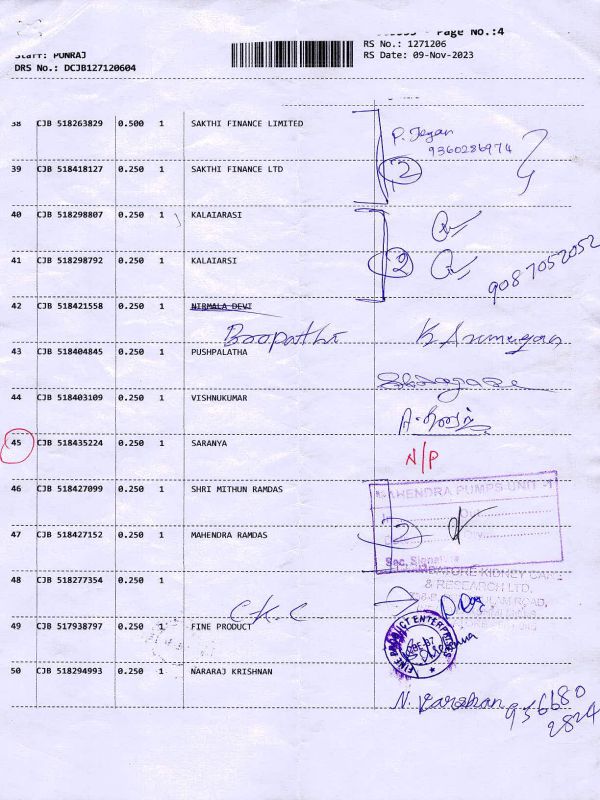 Page No.:4
RS No.: 1271206
Staff: PONRAJ
RS Date: 09-Nov-2023
DRS No.: DCJB127120604
38 CJB 518263829 0.500 1 SAKTHI FINANCE LIMITED
P. Jegan
9360286974
39 CJB 518418127 0.250 1 SAKTHI FINANCE LTD
2
40 CJB 518298807 0.250 1 KALAIARASI
41 CJB 518298792 0.250 1 KALAIARSI
2
9087052052
42 CJB 518421558 0.250 1 NIRMALA DEVI
Boopathi
43 CJB 518404845 0.250 1 PUSHPALATHA
44 CJB 518403109 0.250 1 VISHNUKUMAR
45 CJB 518435224 0.250 1 SARANYA
N/P
46 CJB 518427099 0.250 1 SHRI MITHUN RAMDAS
MAHENDRA PUMPS UNIT
47 CJB 518427152 0.250 1 MAHENDRA RAMDAS
2
Sec. Signature
COIMBATORE KIDNEY CARE
& RESEARCH LTD.
48 CJB 518277354 0.250 1
C.K.C
49 CJB 517938797 0.250 1 FINE PRODUCT
FINE PRODUCT ENTERPRISES
50 CJB 518294993 0.250 1 NARARAJ KRISHNAN
N. Karashan
956680
2824